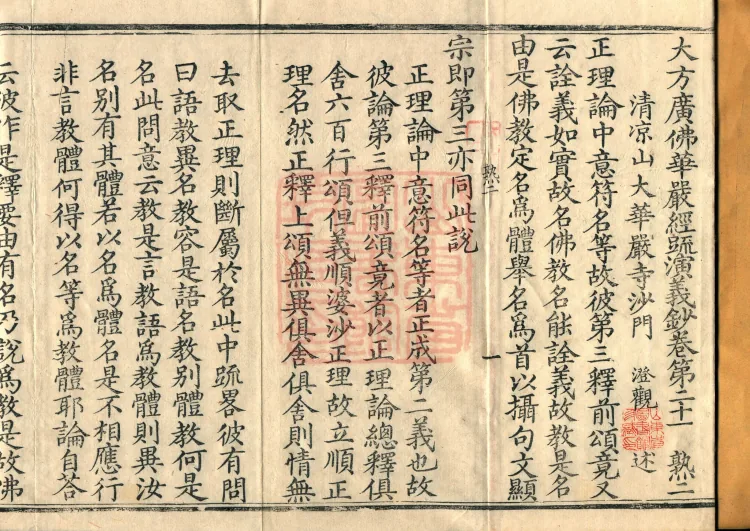 大方廣佛華嚴經䟽演義鈔卷第二十一 熟二
清凉山大華嚴寺沙門 澄觀 述
正理論中意符名等故彼第三釋前頌竟又
云詮義如實故名佛教名能詮義故教是名
由是佛教定名爲體舉名爲首以攝句文顯
宗即第三亦同此說
熟二
一
正理論中意符名等者正成第二義也故
彼論第三釋前頌竟者以正理論總釋俱
舍六百行頌但義順婆沙正理故立順正
理名然正釋上頌無異俱舍俱舍則情無
去取正理則斷屬於名此中䟽畧彼有問
曰語教異名教容是語名教別體教何是
名此問意云教是言教語爲教體則異汝
名別有其體若以名爲體名是不相應行
非言教體何得以名等爲教體耶論自荅
云彼作是釋要由有名乃說爲教是故佛